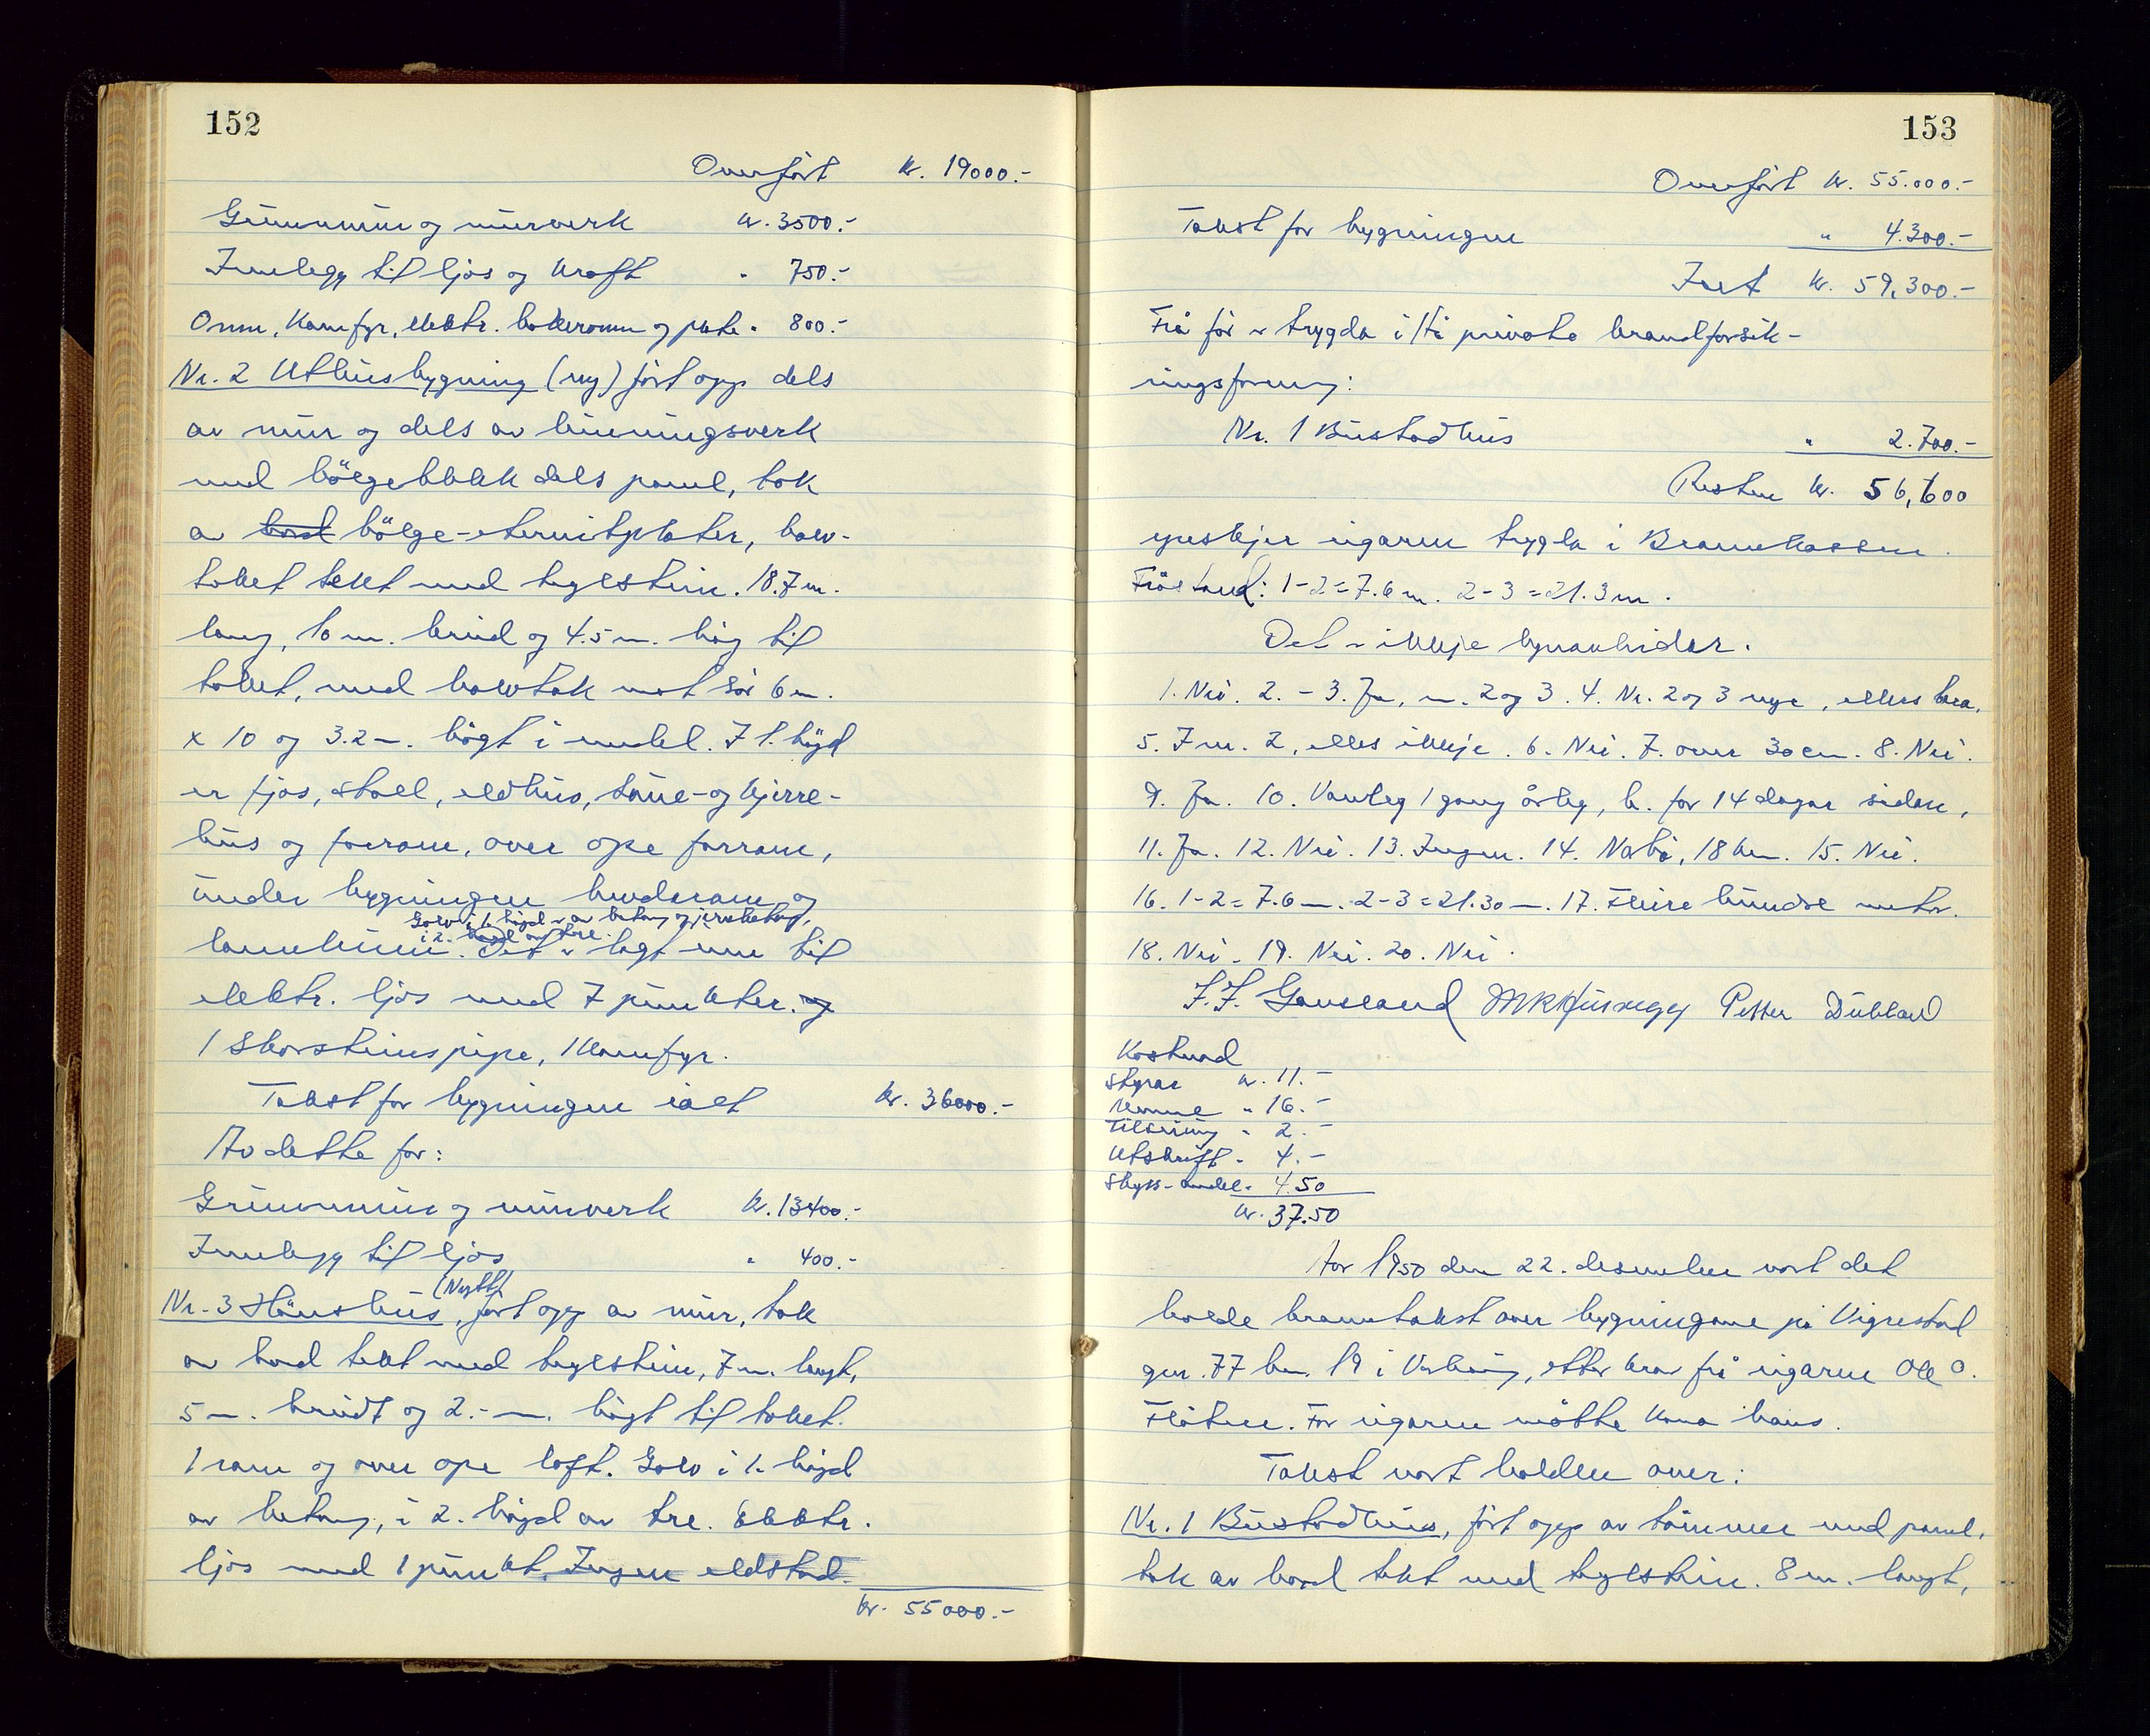 152
Overført kr. 19000.-
Grunnmur og murverk kr. 3500.-
Innlegg til ljos og kraft " 750.-
Omn, komfyr, elektr. bakeromn og plate " 800.-
Nr. 2 Uthusbygning (ny) ført opp dels
av mur og dels av binningsverk
med bölgeblekk dels panel, tak
av bord bölge-eternitplater, halv-
taket tekt med teglstein. 18.7 m.
lang, 10 m. breid og 4.5 m. høg til
taket, med halvtak mot sør 6 m.
x 10 og 3.2 m. høgt i medel. I 1. høgd
er fjos, stall, eldhus, tårne- og kjerre-
hus og forrom, over ope forrom,
under bygningen
Golv i 1. høgd er av betong og jernbetong,
i 2. høgd av tre.
Det er lagt inn til
elektr. ljos med 7 punkter. og
1 skorsteinspipe, 1 komfyr.
Takst for bygningen ialt kr. 36000.-
Av dette for:
Grunnmur og murverk kr. 13400.-
Innlegg til ljos " 400.-
(Nytt)
Nr. 3 Hönsehus, ført opp av mur, tak
av bord tekt med teglstein, 7 m. langt,
5 m. breidt og 2.- m. høgt til taket.
1 rom og over ope loft. Golv i 1. høgd
av betong, i 2. høgd av tre. Elektr.
ljos med 1 punkt. Ingen eldstad.
kr. 55000.-
153
Overført kr. 55.000.-
Takst for bygningen " 4.300.-
Ialt kr. 59,300.-
Frå før er trygda i/hå private brandforsik-
ringsforeing:
Nr. 1 Bustadhus " 2.700.-
Resten kr. 56,600
ynskjer eigaren trygda i Brannkassen.
Fråstand: 1-2 = 7.6 m. 2-3 = 21.3 m.
Det er ikkje bynaboider.
1. Nei. 2. - 3. Ja, nr. 2 og 3. 4. Nr. 2 og 3 nye, elles bra.
5. I nr. 2, elles ikkje. 6. Nei. 7. over 30 cm. 8. Nei.
9. Ja. 10. Vanleg 1 gong årleg, h. for 14 dagar sidan,
11. Ja. 12. Nei. 13. Ingen. 14. Nærbø, 18 km. 15. Nei.
16. 1-2 = 7.6 m. 2-3 = 21.30 m. 17. Fleire hundre meter.
18. Nei. 19. Nei. 20. Nei.
J. J. Gausland Petter Dubland
Kostnad
Styrar kr. 11.-
Menne " 16.-
Tilsening " 2.-
Utskrift " 4.-
Skyss-andel " 4.50
kr. 37.50
Aar 1950 den 22. desember vart det
halde branntakst over bygningane på Vigrestad
gnr. 77 bnr. 19 i Varhaug, etter krav frå eigaren Ole O.
Flåten. For eigaren møtte kona hans.
Takst vart halden over:
Nr. 1 Bustadhus, ført opp av tømmer med panel,
tak av bord tekt med teglstein. 8 m. langt,